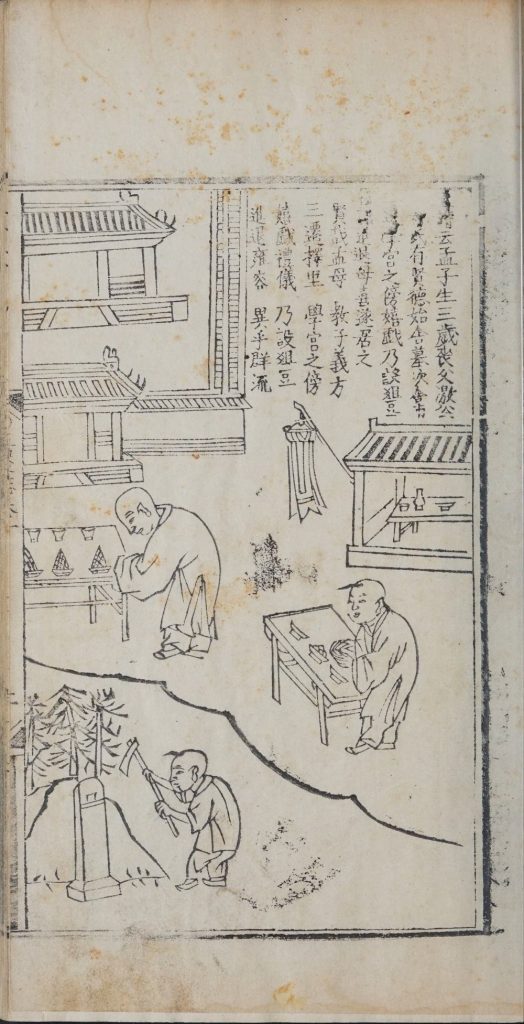 云孟子生三歲喪父激公
有賢德始舍墓次
宮之傍嬉戲乃設俎豆
退母喜遂居之
賢哉孟母 教子義方
三遷擇里 學宮之傍
嬉戲禮儀 乃設俎豆
進退雍容 異乎群流